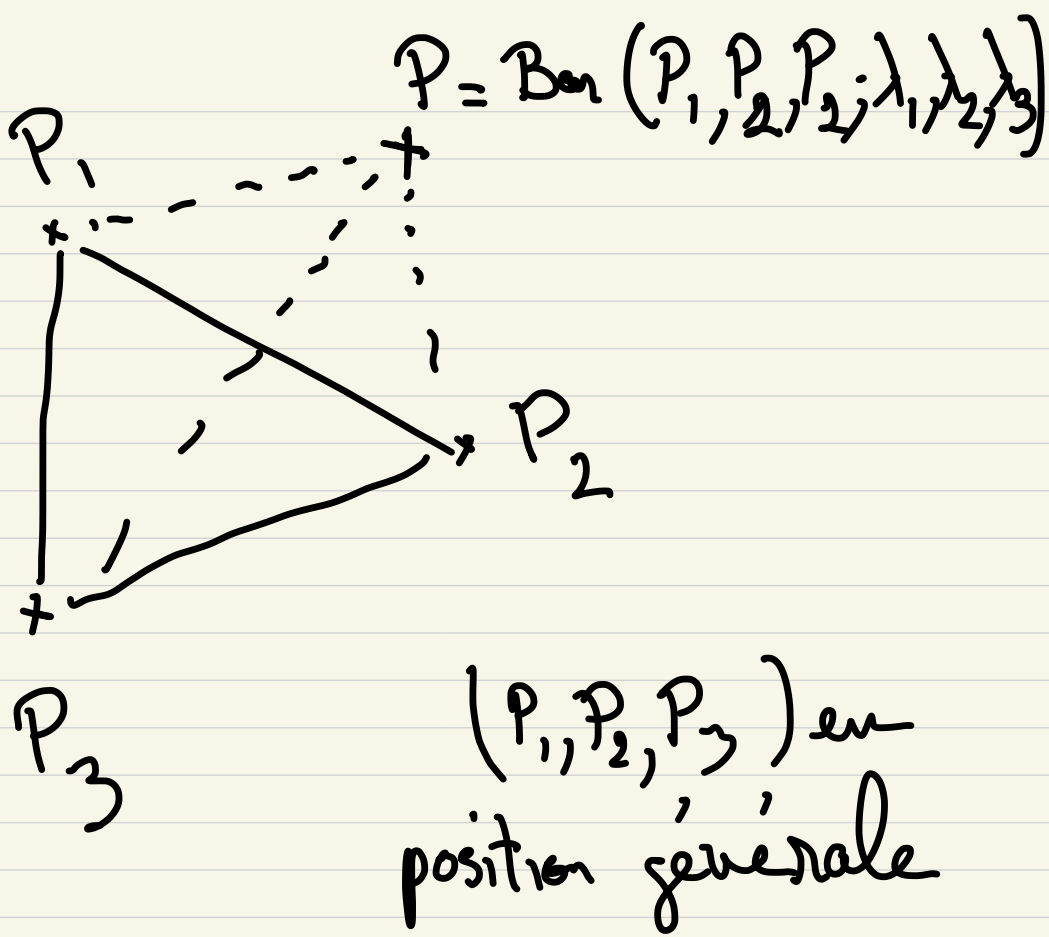 P = Bar (P₁, P₂, P₂; λ₁, λ₂, λ₃)
P₁
P₂
P₃
(P₁, P₂, P₃) en
position générale